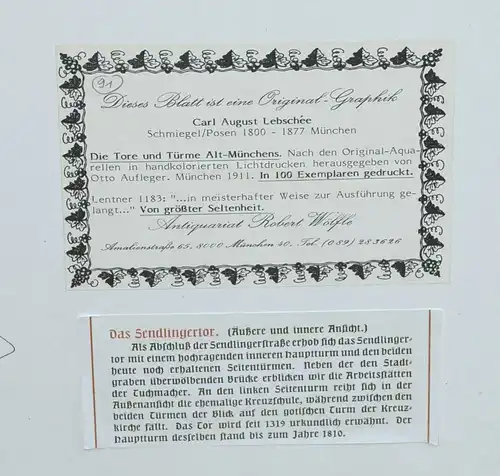 91
Dieses Blatt ist eine Original-Graphik
Carl August Lebschée
Schmiegel/Posen 1800 - 1877 München
Die Tore und Türme Alt-Münchens. Nach den Original-Aqua-
rellen in handkolorierten Lichtdrucken herausgegeben von
Otto Aufleger. München 1911. In 100 Exemplaren gedruckt.
Lentner 1183: "...in meisterhafter Weise zur Ausführung ge-
langt..." Von größter Seltenheit.
Antiquariat Robert Wölfle
Amalienstraße 65, 8000 München 40. Tel. (089) 283626
Das Sendlingertor. (Äußere und innere Ansicht.)
Als Abschluß der Sendlingerstraße erhob sich das Sendlinger-
tor mit einem hochragenden inneren Hauptturm und den beiden
heute noch erhaltenen Seitentürmen. Neben der den Stadt-
graben überwölbenden Brücke erblicken wir die Arbeitsstätten
der Tuchmacher. An den linken Seitenturm reiht sich in der
Außenansicht die ehemalige Kreuzschule, während zwischen den
beiden Türmen der Blick auf den gotischen Turm der Kreuz-
kirche fällt. Das Tor wird seit 1319 urkundlich erwähnt. Der
Hauptturm desselben stand bis zum Jahre 1810.